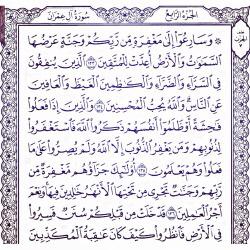 سورة آل عمران
الجزء الرابع
۞ وسارعوا إلى مغفرة من ربكم وجنة عرضها
السموات والأرض أعدت للمتقين ١٣٣ الذين ينفقون
في السراء والضراء والكاظمين الغيظ والعافين
عن الناس والله يحب المحسنين ١٣٤ والذين إذا فعلوا
فاحشة أو ظلموا أنفسهم ذكروا الله فاستغفروا
لذنوبهم ومن يغفر الذنوب إلا الله ولم يصروا على ما
فعلوا وهم يعلمون ١٣٥ أولئك جزاؤهم مغفرة من
ربهم وجنات تجري من تحتها الأنهار خالدين فيها ونعم
أجر العاملين ١٣٦ قد خلت من قبلكم سنن فسيروا
في الأرض فانظروا كيف كان عاقبة المكذبين